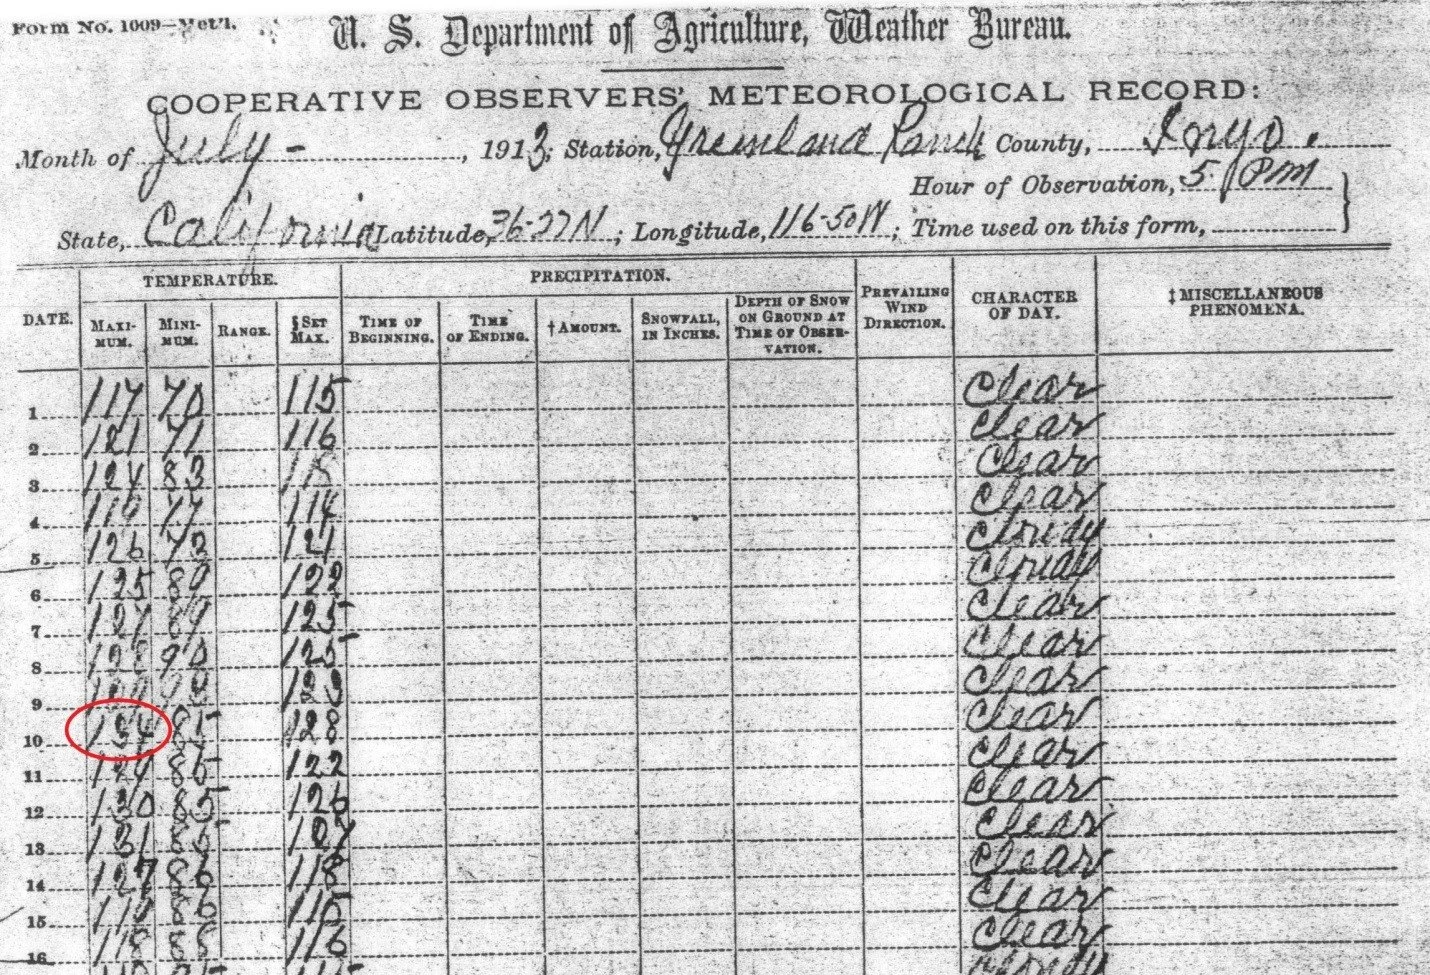 Form No. 1009—Met'l.
U. S. Department of Agriculture, Weather Bureau.
COOPERATIVE OBSERVERS' METEOROLOGICAL RECORD:
Month of July - , 1913; Station, Greenland Ranch County, Inyo.
Hour of Observation, 5 PM
State, California Latitude, 36-27N ; Longitude, 116-50W ; Time used on this form,
TEMPERATURE. PRECIPITATION.
DATE. MAXIMUM. MINIMUM. RANGE. §SET MAX. TIME OF BEGINNING. TIME OF ENDING. †AMOUNT. SNOWFALL, IN INCHES. DEPTH OF SNOW ON GROUND AT TIME OF OBSERVATION. PREVAILING WIND DIRECTION. CHARACTER OF DAY. ‡MISCELLANEOUS PHENOMENA.
1 117 70 115 Clear
2 121 71 116 Clear
3 124 83 Clear
4 77 114 Clear
5 126 73 121 Cloudy
6 125 122 Cloudy
7 127 89 125 Clear
8 128 90 125 Clear
9 123 Clear
10 134 85 128 Clear
11 129 122 Clear
12 130 85 126 Clear
13 131 85 Clear
14 127 86 118 Clear
15 Clear
16 118 88 116 Clear
Cloudy